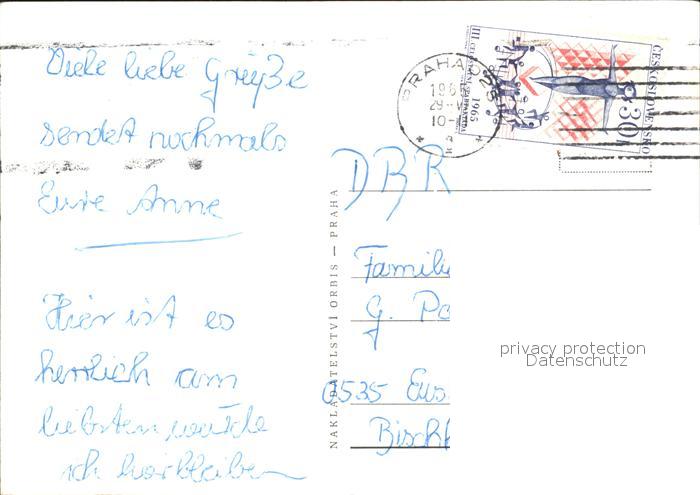 Viele liebe Grüße
sendet nochmals
Eure Anne
Hier ist es
herrlich am
liebsten würde
ich hierbleiben
NAKLADATELSTVÍ ORBIS — PRAHA
PRAHA 025
1965
10
III. CELOSTÁTNÍ SPARTAKIÁDA 1965
ČESKOSLOVENSKO
30h
DBR
Famili
G. Po
0535 Eus
Bisch
privacy protection
Datenschutz